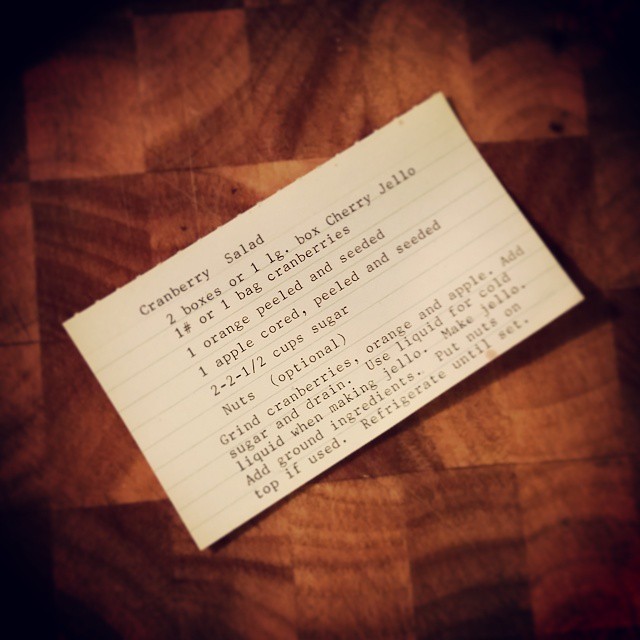 Cranberry Salad
2 boxes or 1 lg. box Cherry Jello
1# or 1 bag cranberries
1 orange peeled and seeded
1 apple cored, peeled and seeded
2-2-1/2 cups sugar
Nuts (optional)
Grind cranberries, orange and apple. Add
sugar and drain. Use liquid for cold
liquid when making jello. Make jello.
Add ground ingredients. Put nuts on
top if used. Refrigerate until set.